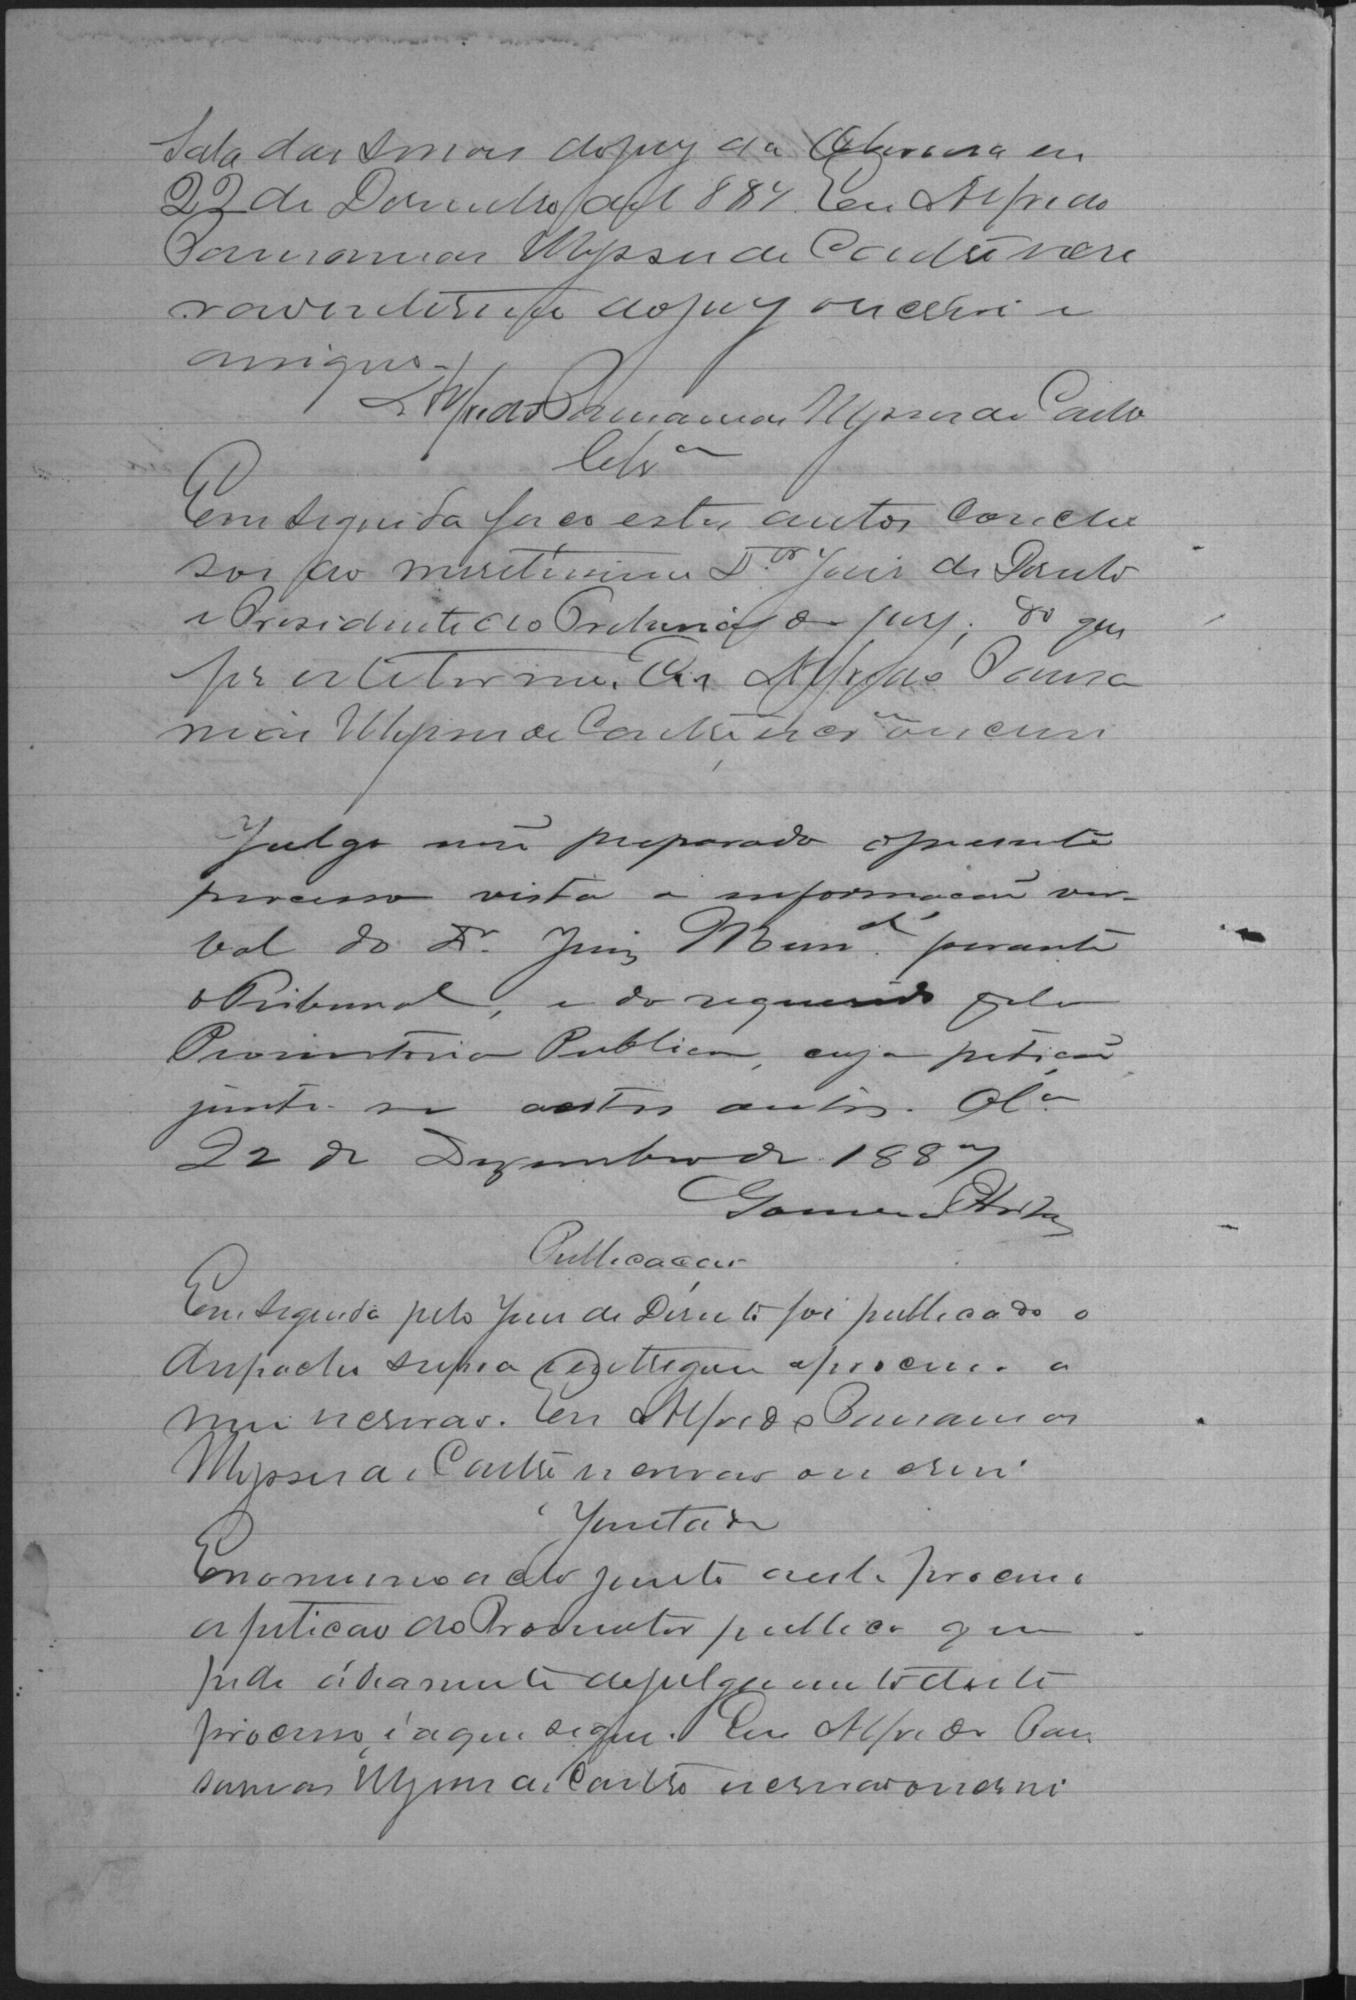 Sala das sessoes do jury da Oliveira em
22 de Desembro de 1887. Eu Alfredo
Pausanias Ulysses de Castro escri
vao interino do jury o escrevi e
assigno.
Alfredo Pausanias Ulysses de Castro
Cls.ᵃᵒ
Em seguida faço estes autos conclu
sos ao meretissimo D.ᵒʳ Juis de Direito
e Presidente do Tribunal do jury; do que
fis este termo. Eu Alfredo Pausa
nias Ulysses de Castro escrᵃᵒ o escrevi
Julgo não preparado o presente
processo vista a informação ver-
bal do Dʳ. Juiz Munᵃˡ. perante
o Tribunal, e do requerido pela
Promotoria Publica, cuja petição
junte-se aestes autos. Olᵃ
22 de Dezembro de 1887
Publicacao
Em seguida pelo Juis de Direito foi publicado o
despacho supra e entregou o processo a
mim escrivao. Eu Alfredo Pausanias
Ulysses de Castro escrivao o escrevi
Juntada
Eno mesmo acto junto a este processo
a peticao do Promotor publico que
pede adiamento de julgamento deste
processo, é a que segue. Eu Alfredo Pau
sanias Ulysses de Castro escrivao o escrevi